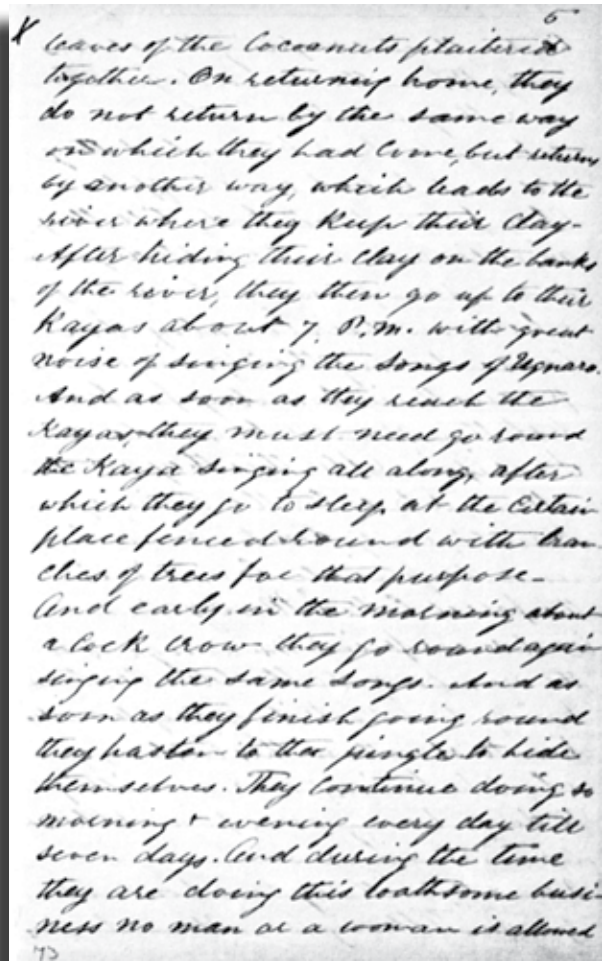 5
X
leaves of the Cocoanuts plaitered
together. On returning home, they
do not return by the same way
on which they had come, but return
by another way, which leads to the
river where they keep their clay-
After hiding their clay on the banks
of the river, they then go up to their
Kayas about 7, P.m. with great
noise of singing the songs of Ugnaro.
And as soon as they reach the
Kayas, they must need go round
the Kaya singing all along, after
which they go to sleep at the certain
place fenced round with bran-
ches of trees for that purpose-
And early in the morning about
a Cock Crow they go round again
singing the same songs. And as
soon as they finish going round
they hasten to the jungle to hide
themselves. They continue doing so
morning & evening every day till
seven days. And during the time
they are doing this loathsome busi-
ness no man or a woman is allowed
73